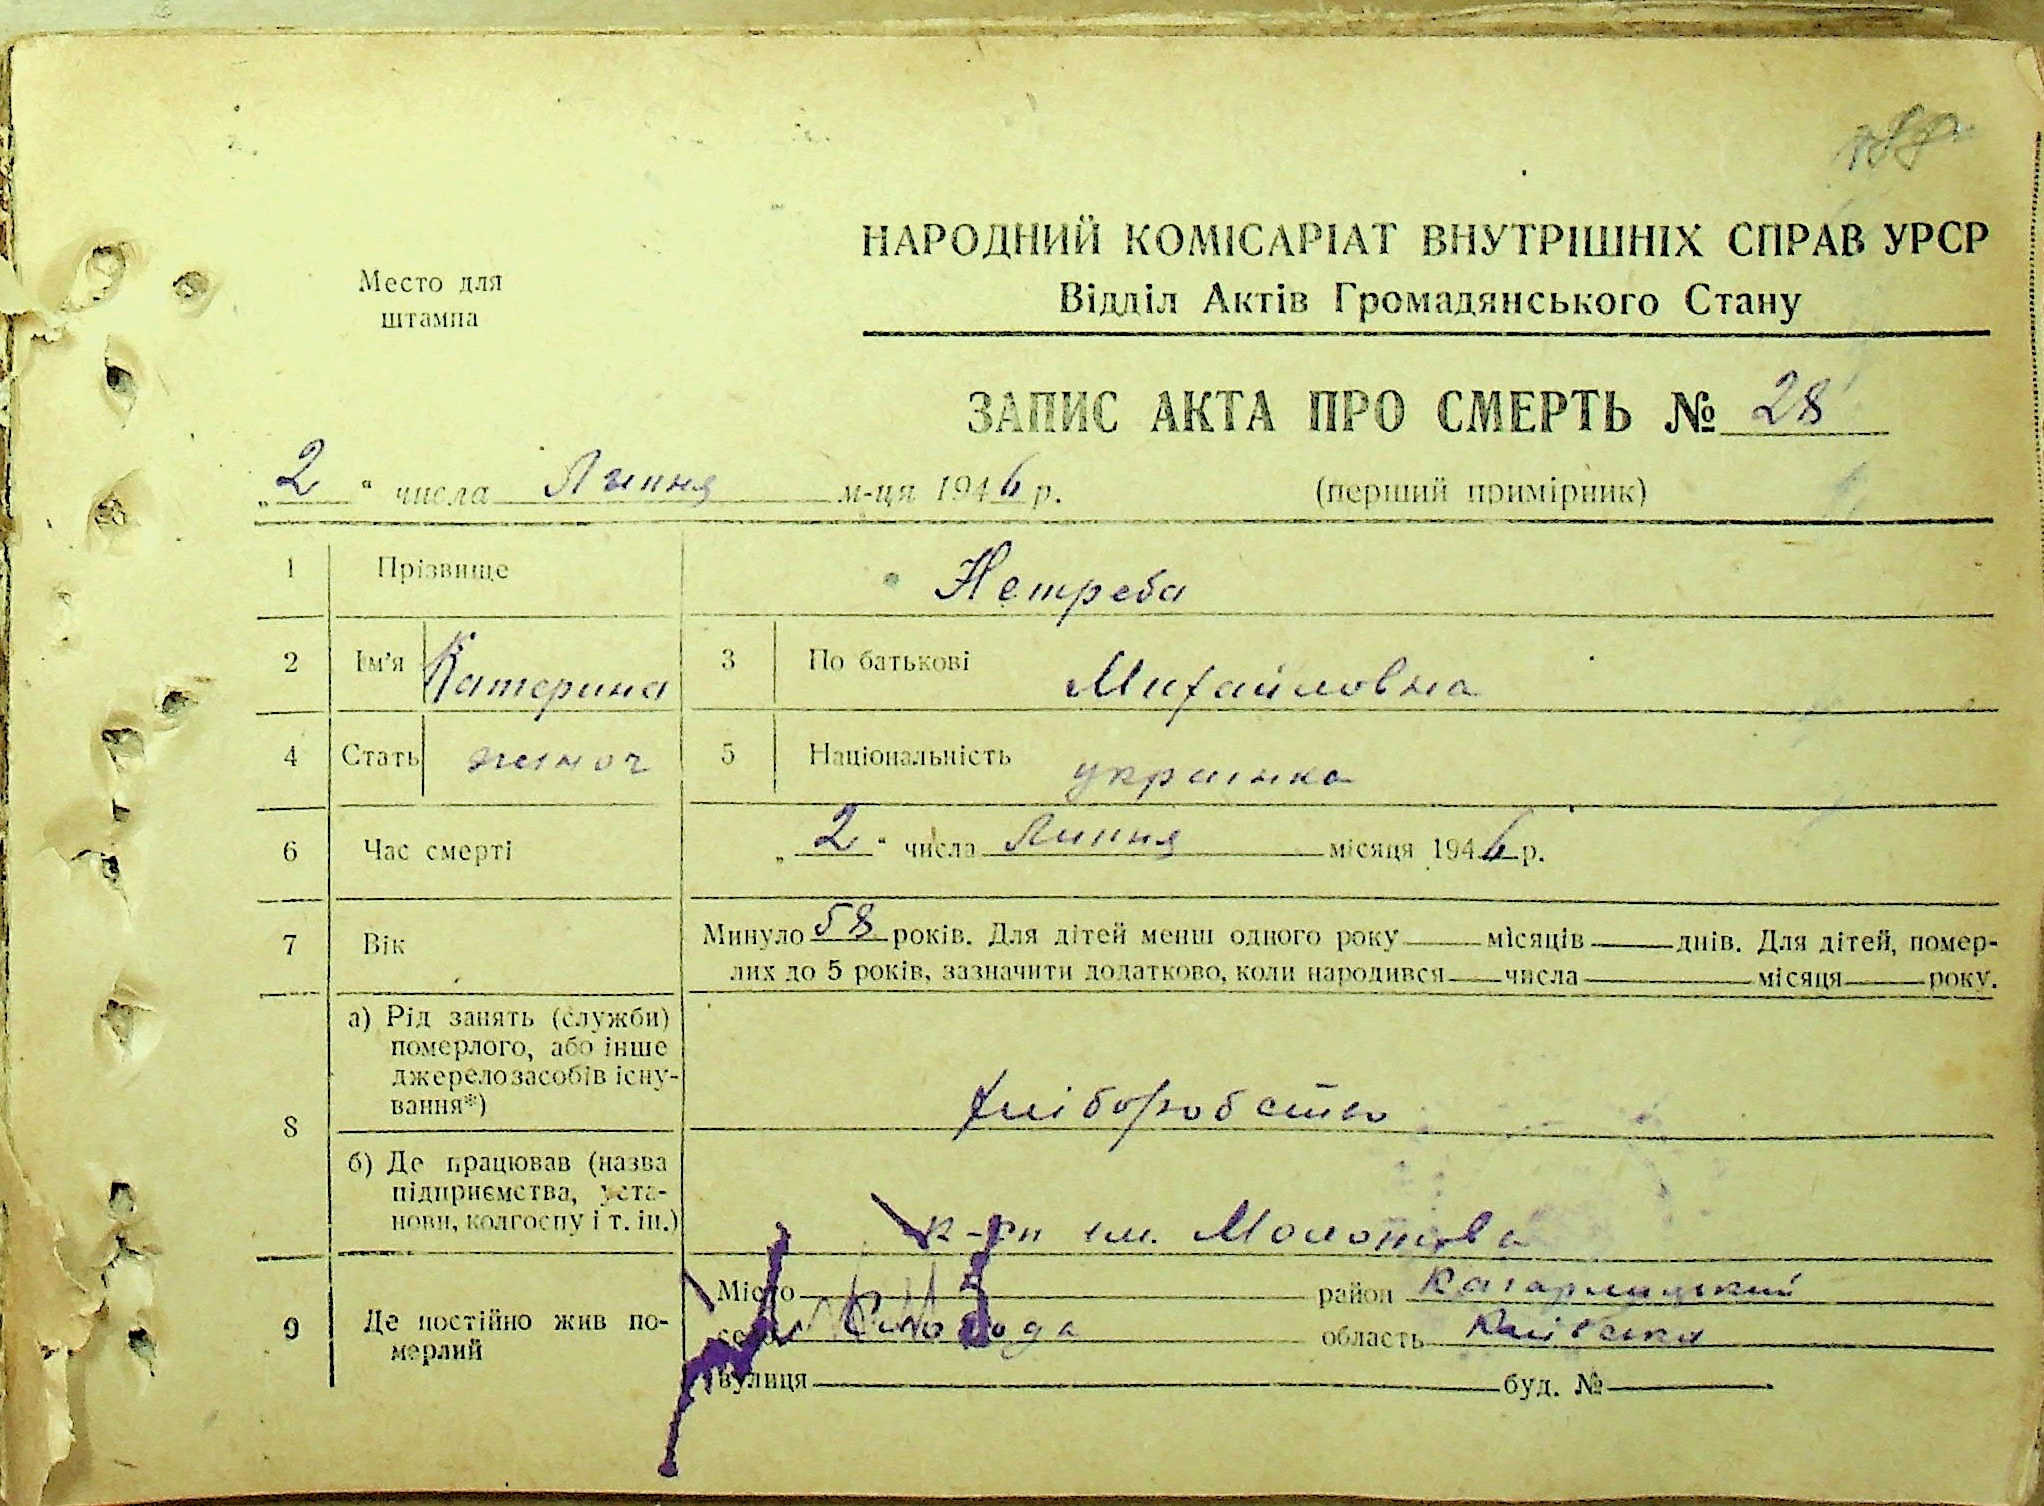 НАРОДНИЙ КОМІСАРІАТ ВНУТРІШНІХ СПРАВ УРСР
Место для
штампа
Відділ Актів Громадянського Стану
ЗАПИС АКТА ПРО СМЕРТЬ № 28
„2“ числа Липня м-ця 1946 р. (перший примірник)
1 Прізвище Нетреба
2 Ім'я Катерина 3 По батькові Михайловна
4 Стать жіноч 5 Національність українка
6 Час смерті „2“ числа Липня місяця 1946 р.
7 Вік Минуло 58 років. Для дітей менш одного року місяців днів. Для дітей, помер-
лих до 5 років, зазначити додатково, коли народився числа місяця року.
8 а) Рід занять (служби)
померлого, або інше
джерело засобів існу-
вання*) хліборобство
б) Де працював (назва
підприємства, уста-
нови, колгоспу і т. ін.) к-сп ім. Молотова
9 Де постійно жив по-
мерлий
Місто район Кагарлицький
село область Київська
вулиця буд. №